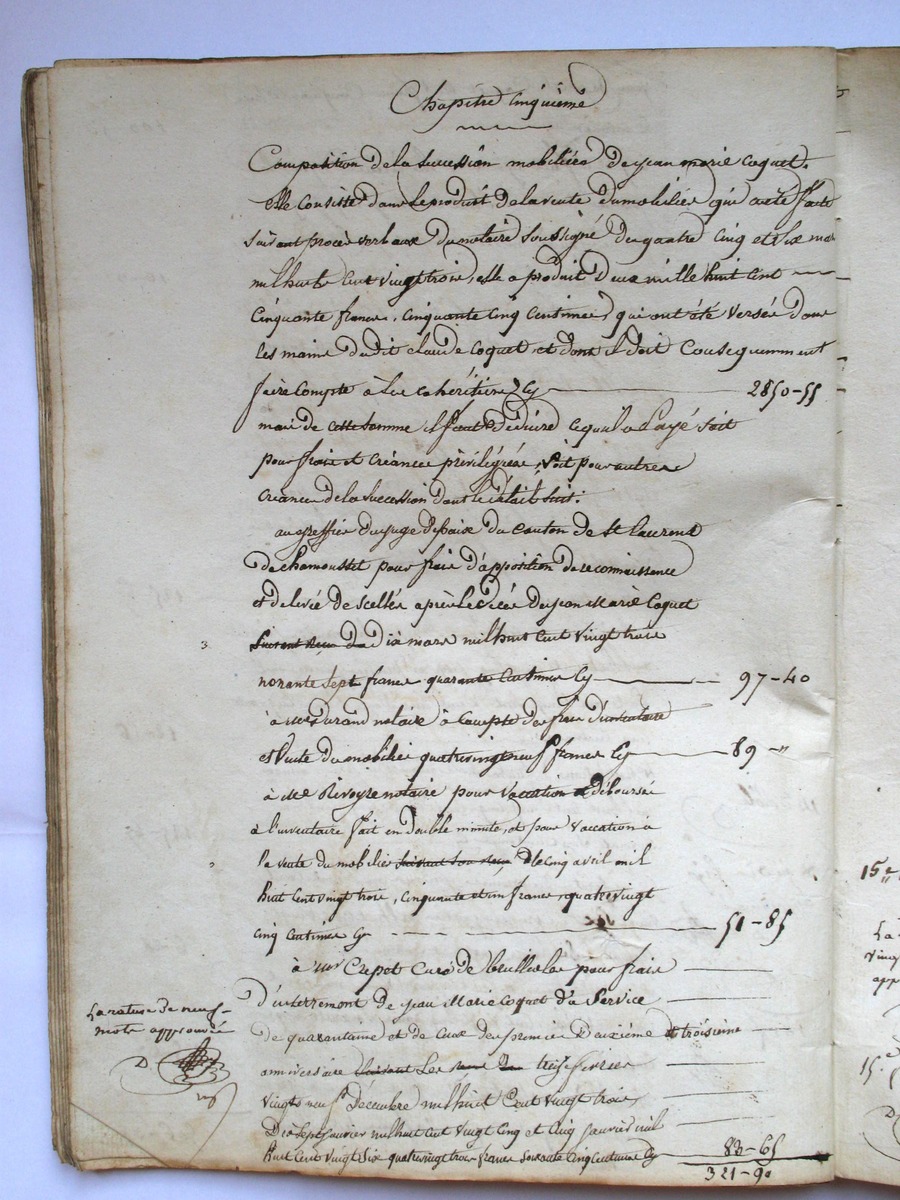 Chapitre Cinquième
Composition de la succession mobiliére de jean marie Coquet.
elle Consiste dans le produit de la vente du mobilier qui a été faite
suivant procès verbaux du notaire soussigné du quatre Cinq et six mars
mil huit Cent vingt trois, elle a produit deux mille huit Cent
Cinquante francs, Cinquante Cinq Centimes, qui ont été versés dans
les mains dudit Claude Coquet, et dont il doit Conséquemment
faire Compte à ses cohéritiers Cy 2850-55
mais de cette somme il faut déduire ce qu'il a Payé soit
pour frais et Créances privilégiées, soit pour autres
Créances de la succession dont le détail suit:
au greffier du juge de paix du canton de St Laurent
de chamousset pour frais d'apposition de reconnaissance
et de levée de scellés après le décès de jean Marie Coquet
suivant reçu du dix mars mil huit Cent vingt trois
nonante sept francs quarante Centimes Cy 97-40
à Me Durand notaire à Compte des frais d'inventaire
et Vente du mobilier quatrevingt neuf francs Cy 89-"
à Me Rivoyre notaire pour vacation et déboursés
à l'inventaire fait en double minute, et pour vaccation à
la vente du mobilier suivant son reçu du Cinq avril mil
huit Cent vingt trois, Cinquante et un francs, quatre vingt
Cinq Centimes Cy 51-85
à Mr Crepet Curé de Brullioles pour frais
d'interrement de jean Marie Coquet du Service
de quarantaine et de Ceux des premier Deuxiéme et troisiéme
anniversaire suivant Les
vingt neuf Décembre mil huit Cent vingt trois,
Dix sept janvier mil huit Cent vingt Cinq et Cinq janvier mil
huit Cent vingt Six quatrevingt trois francs soixante Cinq Centimes Cy 83-65
321-90
La rature de neuf
mots approuvée
D.
15e
La
vingt
app
15e